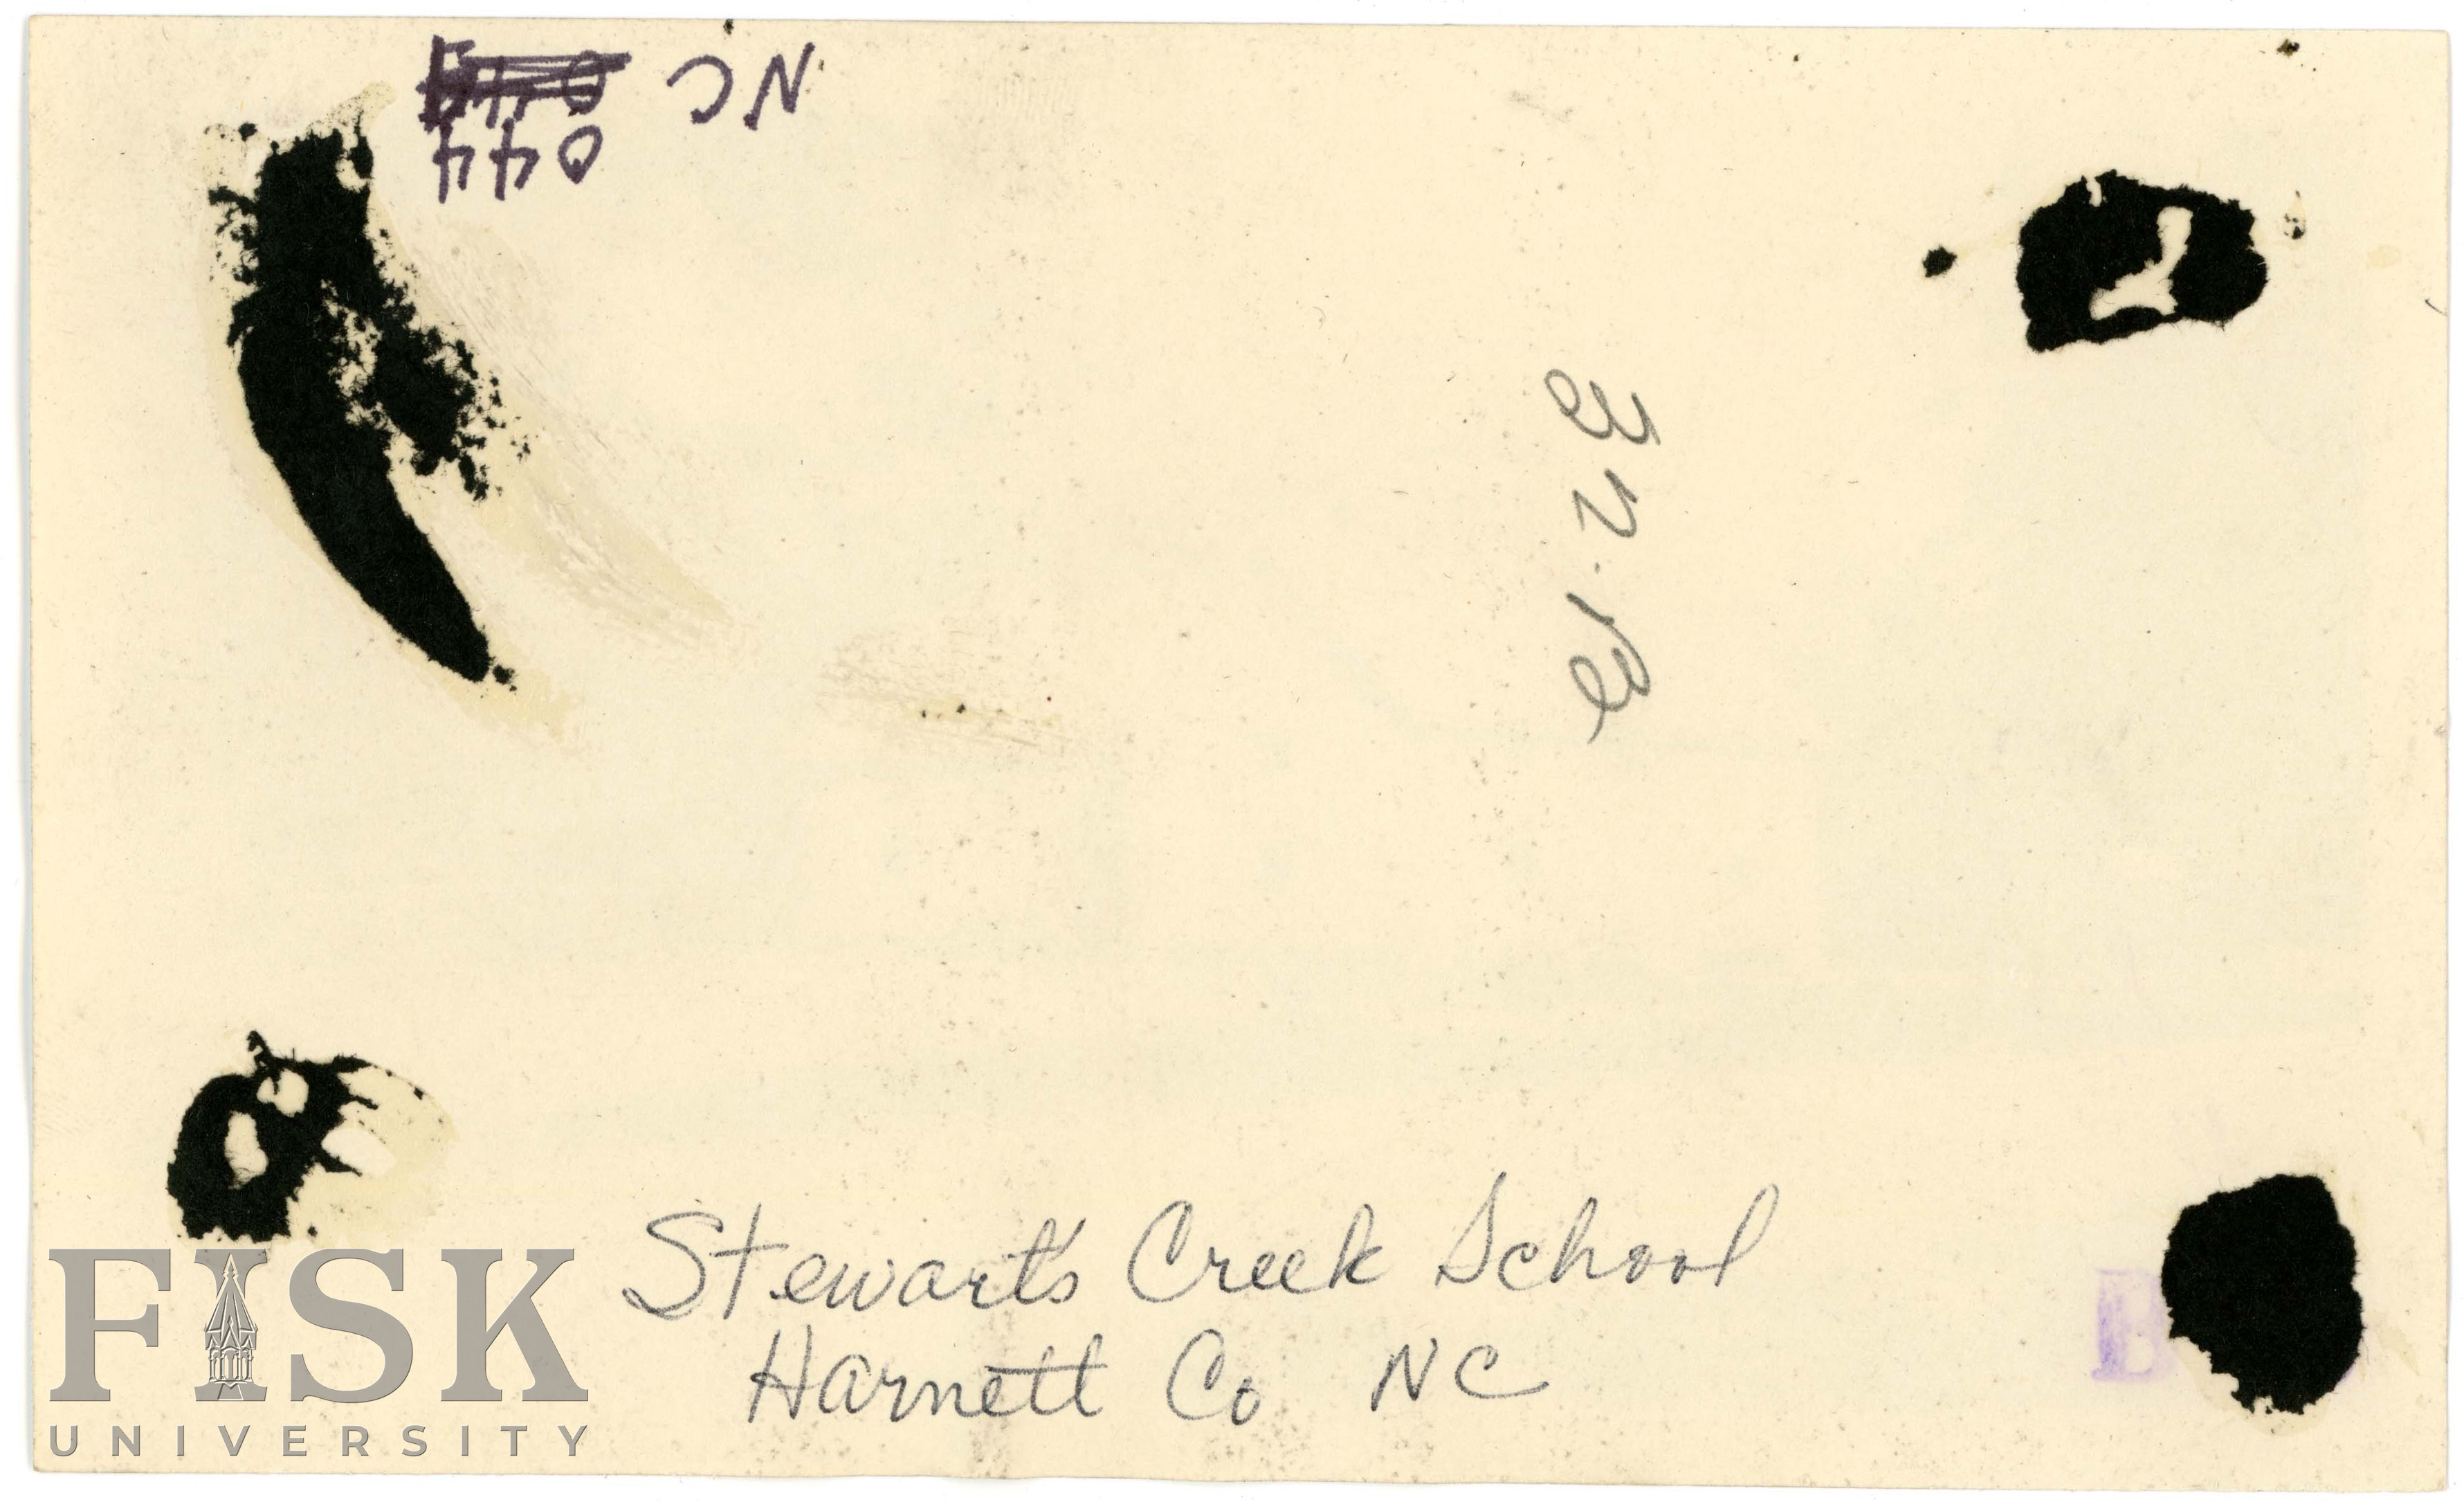 NC
044
Stewart's Creek School
Harnett Co NC
FISK
UNIVERSITY